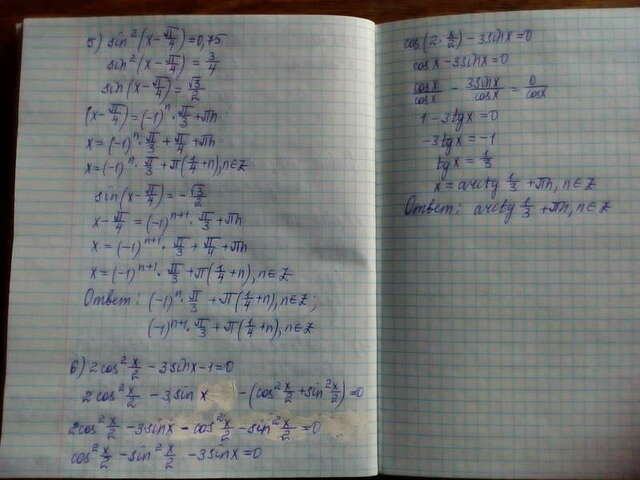 5) sin²(x-π/4)=0,75
sin²(x-π/4)=3/4
sin(x-π/4)=√3/2
(x-π/4)=(-1)ⁿ·π/3+πn
x=(-1)ⁿ·π/3+π/4+πn
x=(-1)ⁿ·π/3+π(1/4+n),n∈Z
sin(x-π/4)=-√3/2
x-π/4=(-1)ⁿ⁺¹·π/3+πn
x=(-1)ⁿ⁺¹·π/3+π/4+πn
x=(-1)ⁿ⁺¹·π/3+π(1/4+n),n∈Z
Ответ: (-1)ⁿ·π/3+π(1/4+n),n∈Z;
(-1)ⁿ⁺¹·π/3+π(1/4+n),n∈Z
6) 2cos²x/2-3sinx-1=0
2cos²x/2-3sinx-(cos²x/2+sin²x/2)=0
2cos²x/2-3sinx-cos²x/2-sin²x/2=0
cos²x/2-sin²x/2-3sinx=0
cos(2·x/2)-3sinx=0
cosx-3sinx=0
cosx/cosx-3sinx/cosx=0/cosx
1-3tgx=0
-3tgx=-1
tgx=1/3
x=arctg1/3+πn,n∈Z
Ответ: arctg1/3+πn,n∈Z